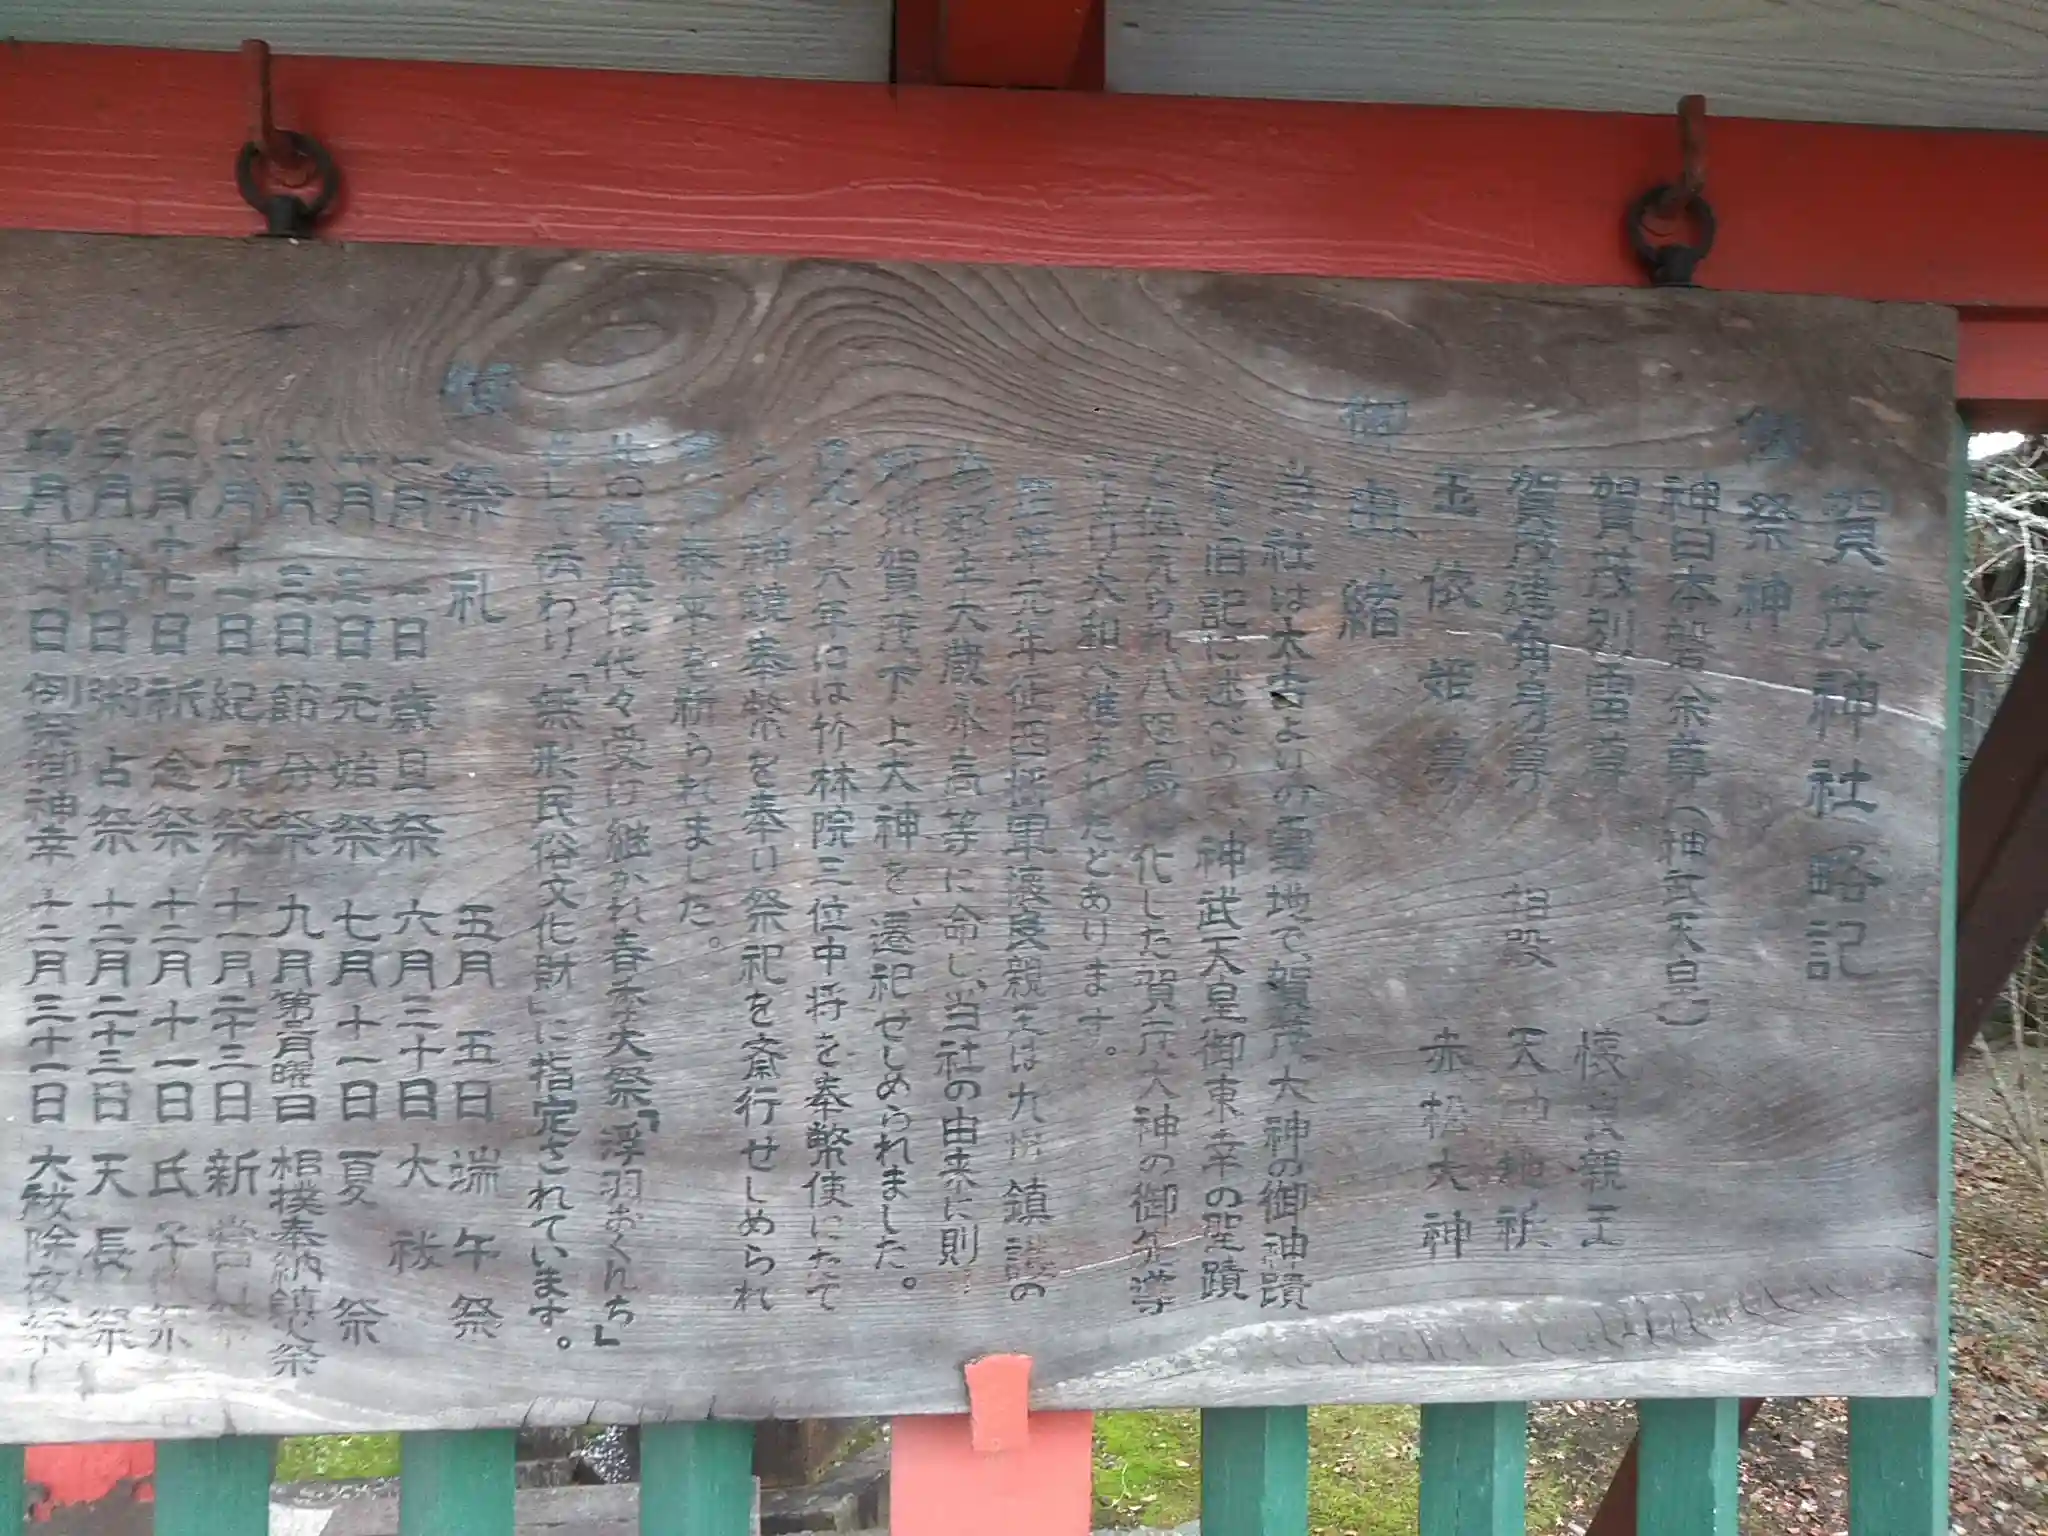 賀茂神社略記
御祭神
神日本磐余尊(神武天皇)
賀茂別雷尊 懐良親王
賀茂建角身尊 相殿 天神地祇
玉依姫尊 赤松大神
御由緒
当社は太古よりの霊地で、賀茂大神の御神蹟
旧記に述べら 神武天皇御東幸の聖蹟
伝えられ八咫烏 化した賀茂大神の御先導
により大和へ進まれたとあります。
元年征西将軍懐良親王は九州鎮護の
郡主大蔵永高等に命じ、当社の由来に則
賀茂下上大神を、遷祀せしめられました。
十六年には竹林院三位中将を奉幣使にたて
神鏡奉幣を奉り祭祀を斎行せしめられ
泰平を祈られました。
此の祭典は代々受け継がれ春季大祭「浮羽おくんち」
として伝わり「無形民俗文化財」に指定されています。
祭礼 五月五日 端午祭
一月一日 歳旦祭 六月三十日 大祓
一月三日 元始祭 七月十一日 夏祭
二月三日 節分祭 九月第二月曜日 相撲奉納鎮火祭
二月十一日 紀元祭 十一月二十三日 新嘗祭
二月十七日 祈念祭 十二月十一日 氏子祭
三月 日 粥占祭 十二月二十三日 天長祭
四月十一日 例祭御神幸 十二月三十一日 大祓除夜祭